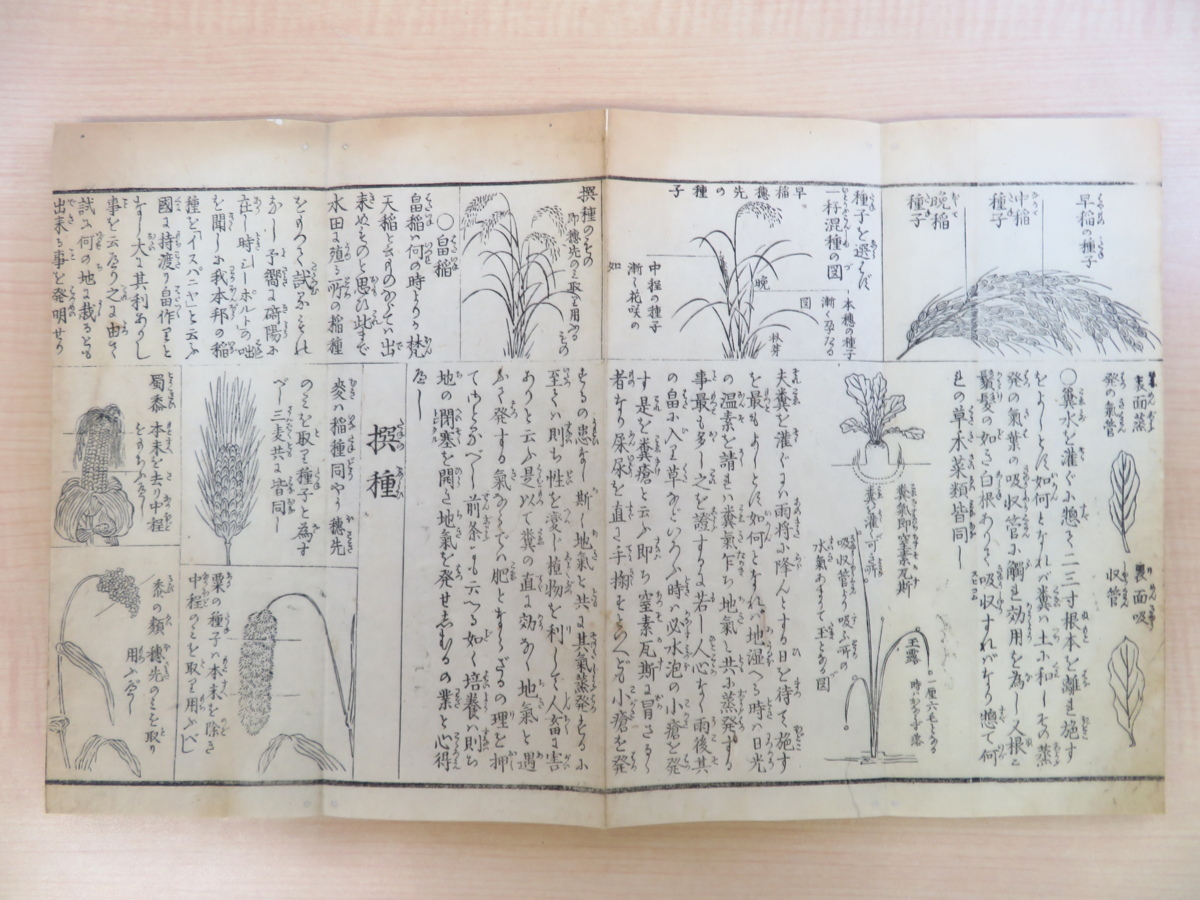 早稲の種子
中稲
種子
晩稲
種子
種子を選ばず
一籽混種の図
早稲穂先の種子
本穂の種子
漸く孕なる
図
晩
中程の種子
漸く花咲の
如
撰種のもの
即穂先のミ取て用ふるもの
○畠稲
畠稲ハ何の時よりか梵
天稲と云ものありて出
来ぬものと思ひ此まで
水田に殖る所の稲種
なし予嚮に碕陽に
在し時シーボルトの咄
を聞しに我本邦の稲
種を「イスパニヤ」と云ふ
國に持渡り畠作りと
なし大に其利ありし
事を云へり之に由て
試に何の地に栽るとも
出来る事を発明せり
葉面蒸
発の氣管
裏面吸
収管
○糞水を灌ぐに惣て二三寸根本を離れ施す
をよしとす如何となれバ糞ハ土に和しその蒸
発の氣葉の吸収管に觸れ効用を為し又根に
鬚髪の如き白根ありて吸収すれバなり惣て何
れの草木菜類皆同し
糞氣即窒素瓦斯
糞灌ぐ可き所
吸収管より吸ふ所の
水氣あまりて玉となる図
玉露
夫糞を灌ぐにハ雨将に降んとする日を待て施す
を最もよしとす如何となれバ地湿へる時ハ日光
の温素を請れバ糞氣乍ち地氣と共に蒸発する
事最も多し之を證するに若し人心なく雨後其
の畠に入り草などいろふ時ハ必水泡の小瘡を発
す是を糞瘡と云ふ即ち窒素瓦斯に冒さるゝ
者なり尿屎を直に手搦をといへども小瘡を発
するの患なし斯く地氣と共に其氣蒸発するに
至てハ則ち性を変し植物を利して人畜に害
ありと云ふ是以て糞の直に効あく地氣と遇
ふて発する氣ならでハ肥とならざるの理を押
て知るべし前条にも云へる如く培養ハ則ち
地の閉塞を開き地氣を発せしむるの業と心得
べし
撰種
麥ハ稲種同やう穂先
のミを取て種子と為す
べし三麦共に皆同し
蜀黍
本末を去り中程
をもちふべし
粟の種子ハ本末を除き
中程のミを取て用ふべし
黍の類ハ穂先のミを取り
用ふべし